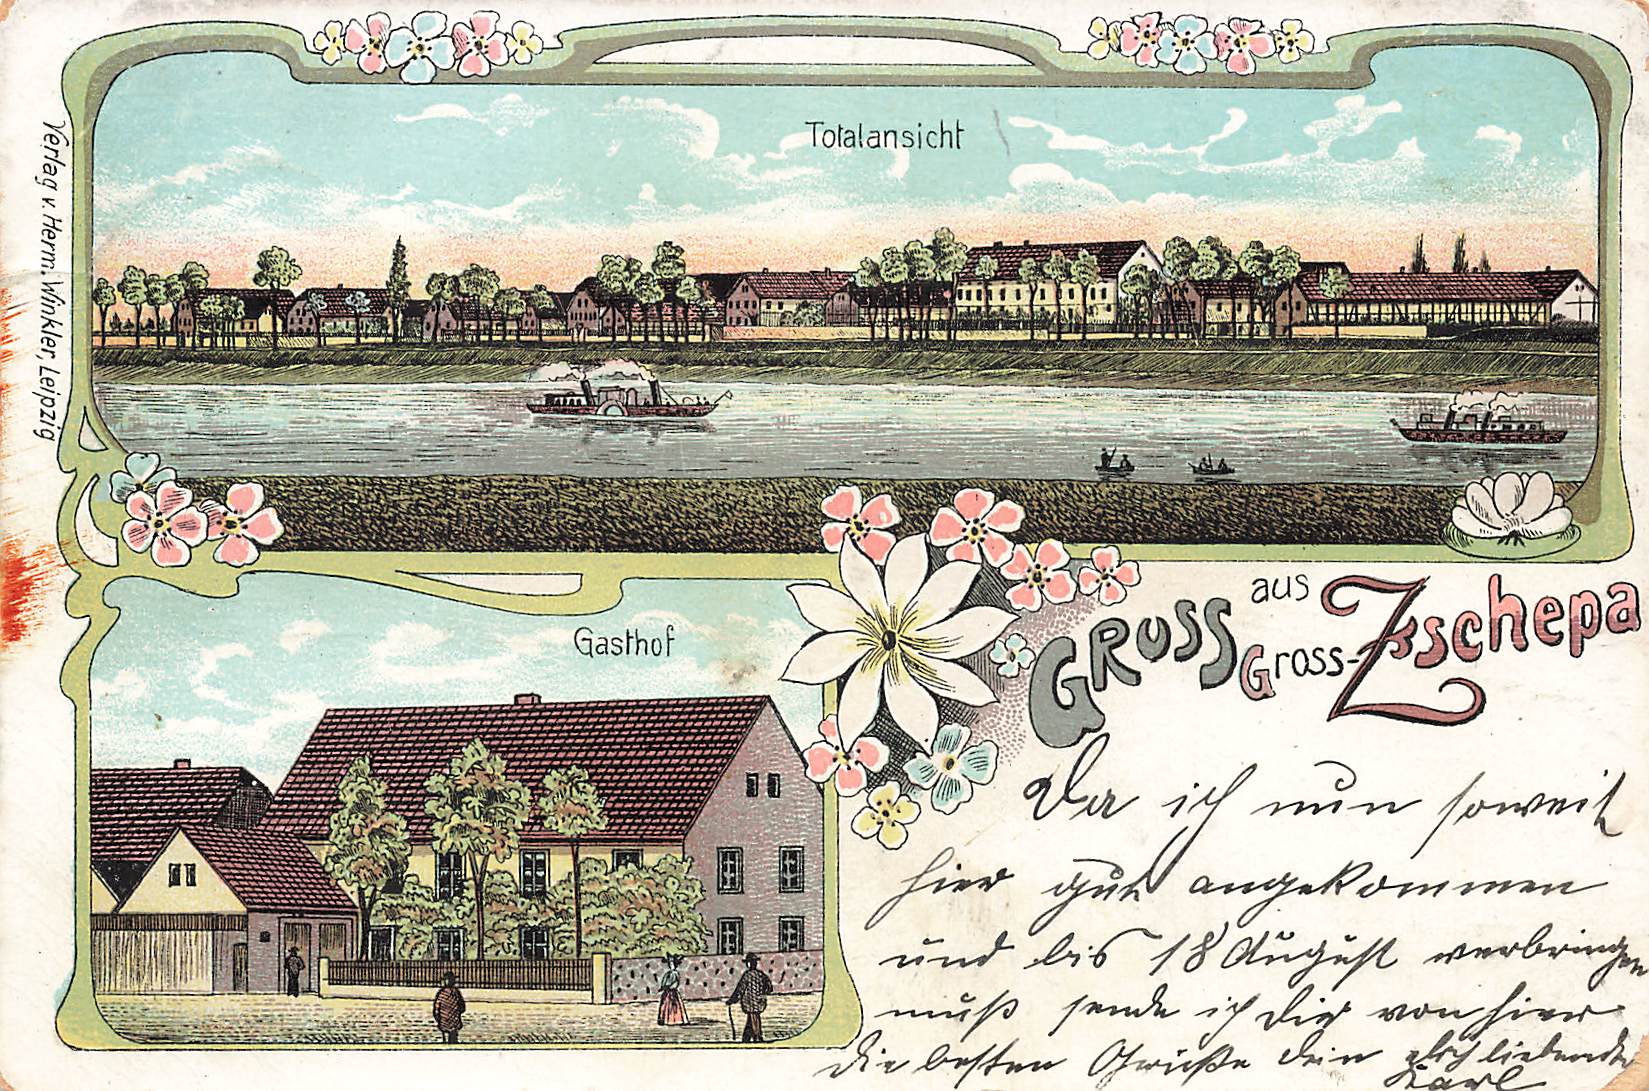 Totalansicht
Verlag v. Herm. Winkler, Leipzig
Gasthof
Gruss aus Gross-Zschepa
Da ich nun soweit
hier gut angekommen
und bis 18 August verbringen
muß sende ich Dir von hier
die besten Grüße Dein Dich liebender
Karl